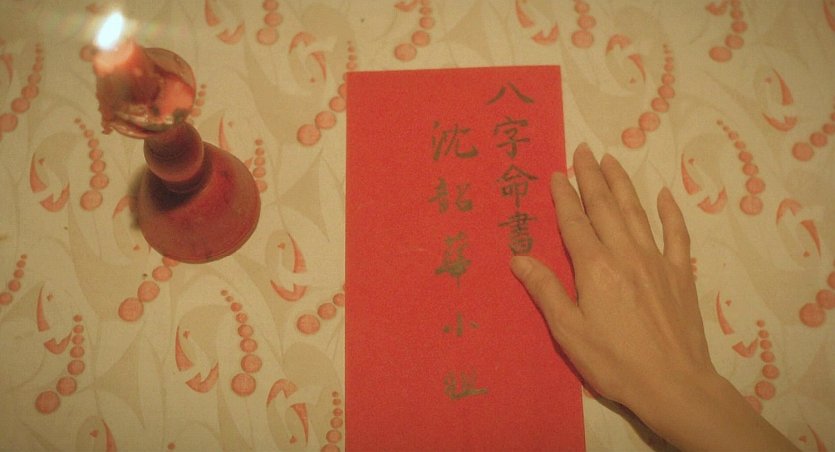 八字命書
沈韶華小姐